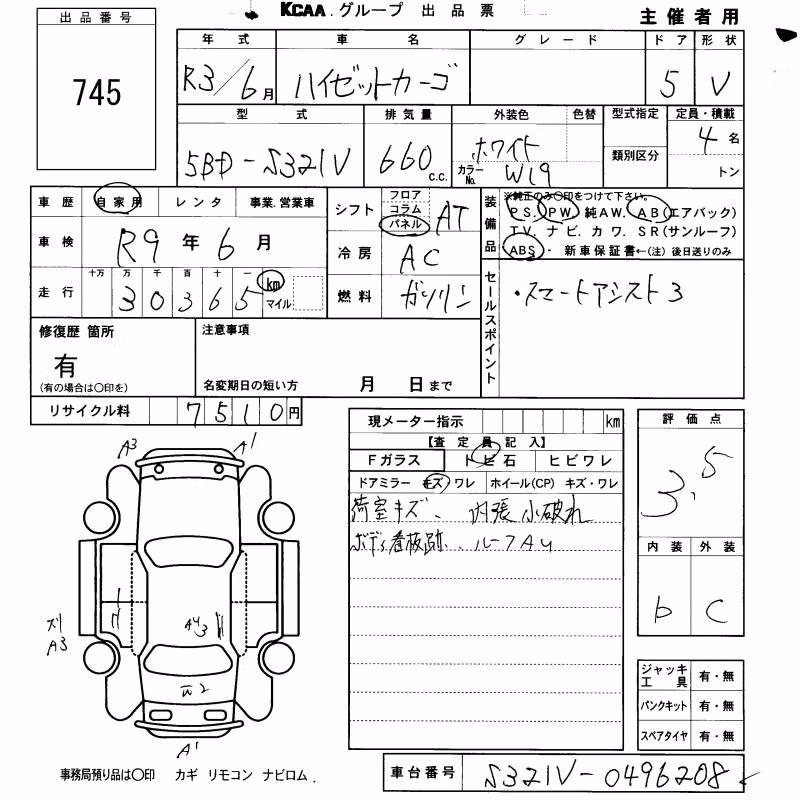 KCAA.グループ 出品票
主催者用
出品番号
745
年式 車名 グレード ドア 形状
R3/6月 ハイゼットカーゴ 5 V
型式 排気量 外装色 色替 型式指定 定員・積載
5BD-S321V 660 c.c. ホワイト カラーNo. W19 類別区分 4名
トン
車歴 自家用 レンタ 事業.営業車
車検 R9年6月
走行 十万 万 千 百 十 一 km
30365 マイル
シフト フロア コラム パネル AT
冷房 AC
燃料 ガソリン
装備品 ※純正のみ○印をつけて下さい。
PS. PW. 純AW. AB(エアバック)
TV. ナビ. カワ. SR(サンルーフ)
ABS・新車保証書←(注)後日送りのみ
セールスポイント
・スマートアシスト3
修復歴 箇所 注意事項
有
(有の場合は○印を) 名変期日の短い方 月 日まで
リサイクル料 7510円
現メーター指示 km
【査定員記入】
Fガラス トビ石 ヒビワレ
ドアミラー キズ ワレ ホイール(CP) キズ・ワレ
荷室キズ、内張小破れ
ボディ看板跡、ルーフAU
評価点
3.5
内装 外装
b C
ジャッキ工具 有・無
パンクキット 有・無
スペアタイヤ 有・無
A3 A1
A3
W2
A1
事務局預り品は○印 カギ リモコン ナビロム.
車台番号 S321V-0496208